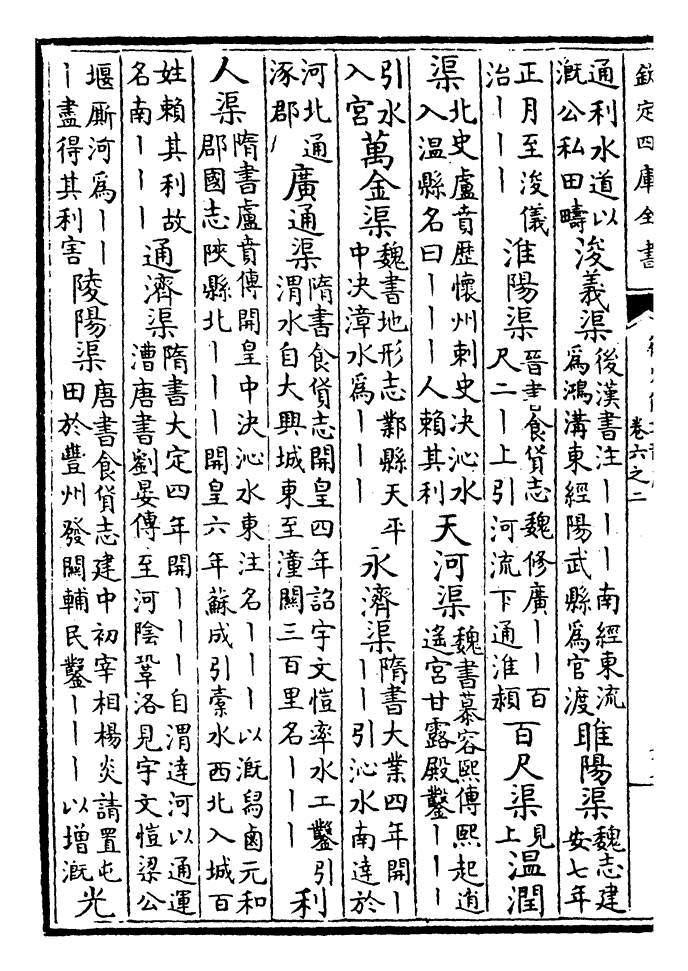 欽定四庫全書
卷六之二
通利水道以
溉公私田疇
浚義渠
後漢書注丨丨丨南經東流
為鴻溝東經陽武縣為官渡
睢陽渠
魏志建
安七年
正月至浚儀
治丨丨丨
淮陽渠
晉書食貨志魏修廣丨丨百
尺二丨上引河流下通淮潁
百尺渠
見
上
温潤
渠
北史盧賁歷懷州刺史决沁水
入温縣名曰丨丨丨人賴其利
天河渠
魏書慕容熙傳熙起逍
遙宮甘露殿鑿丨丨丨
引水
入宮
萬金渠
魏書地形志鄴縣天平
中决漳水為丨丨丨
永濟渠
隋書大業四年開丨
丨丨引沁水南達於
河北通
涿郡丨
廣通渠
隋書食貨志開皇四年詔宇文愷率水工鑿引
渭水自大興城東至潼關三百里名丨丨丨
利
人渠
隋書盧賁傳開皇中决沁水東注名丨丨丨以溉舄鹵元和
郡國志陜縣北丨丨丨開皇六年蘇成引索水西北入城百
姓賴其利故
名南丨丨丨
通濟渠
隋書大定四年開丨丨丨自渭達河以通運
漕唐書劉晏傳至河陰鞏洛見宇文愷梁公
堰厮河為丨丨
丨盡得其利害
陵陽渠
唐書食貨志建中初宰相楊炎請置屯
田於豐州發關輔民鑿丨丨丨以增溉
光